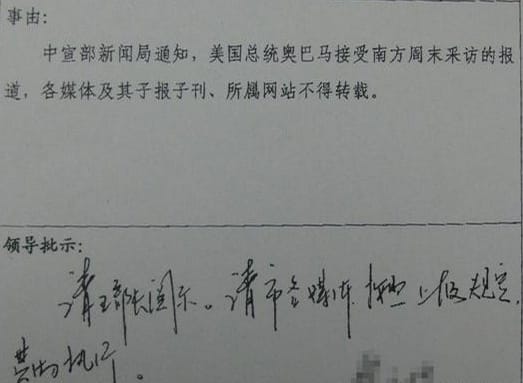 事由:
中宣部新闻局通知，美国总统奥巴马接受南方周末采访的报
道，各媒体及其子报子刊、所属网站不得转载。
领导批示:
请王部长阅示。请市全媒体按照上级规定，
执行。